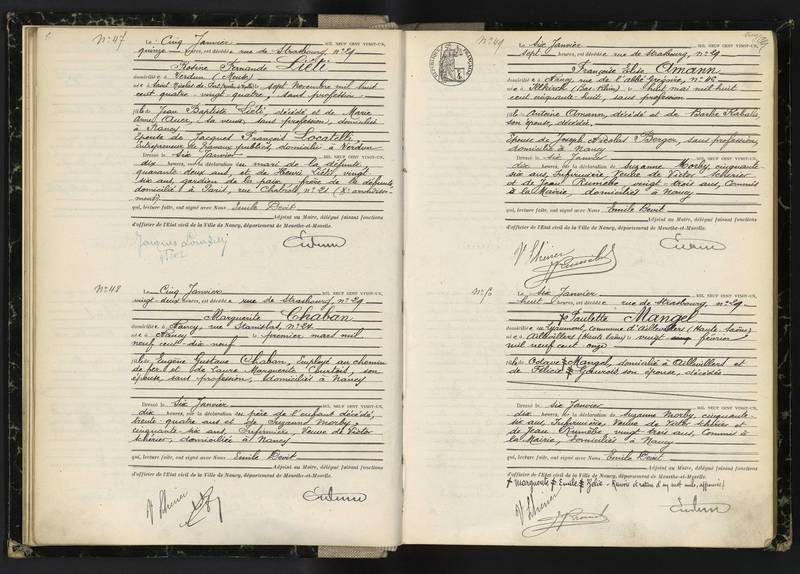 N° 47
Le Cinq Janvier MIL NEUF CENT VINGT-UN,
quinze heures, est décédée rue de Strasbourg, n° 29
Rosine Fernande Liéti
domiciliée à Verdun (Meuse)
née à Saint Nicolas de Port sept Novembre mil huit
cent quatre vingt quatre, sans profession
fille de Jean Baptiste Liéti, décédé et de Marie
Anne Auer, sa veuve, sans profession, domiciliée
à Nancy
Épouse de Jacques François Locatelli,
Entrepreneur de travaux publics, domicilié à Verdun
Dressé le six Janvier MIL NEUF CENT VINGT-UN,
dix heures, sur la déclaration du mari de la défunte,
quarante deux ans, et de Henri Liéti, vingt
six ans, gardien de la paix, frère de la défunte
domicilié à Paris, rue Chabrol, n° 21
qui, lecture faite, ont signé avec Nous Emile Devit
Adjoint au Maire, délégué faisant fonctions
d'officier de l'Etat civil de la Ville de Nancy, département de Meurthe-et-Moselle.
N° 48
Le Cinq Janvier MIL NEUF CENT VINGT-UN,
vingt-deux heures, est décédée rue de Strasbourg, n° 29
Marguerite Chaban
domiciliée à Nancy, rue Stanislas, n° 24
née à Nancy premier mars mil
neuf cent dix neuf
fille de Eugène Gustave Chaban, Employé au chemin
de fer et de Laure Marguerite Courtois, son
épouse, sans profession, domiciliés à Nancy
Dressé le six Janvier MIL NEUF CENT VINGT-UN,
dix heures, sur la déclaration du père de l'enfant décédé,
trente quatre ans et de Suzanne Morby,
cinquante six ans, Infirmière, Veuve de Victor
Schérier, domiciliée à Nancy
qui, lecture faite, ont signé avec Nous Emile Devit
Adjoint au Maire, délégué faisant fonctions
d'officier de l'Etat civil de la Ville de Nancy, département de Meurthe-et-Moselle.
N° 49
Le six Janvier MIL NEUF CENT VINGT-UN,
sept heures, est décédée rue de Strasbourg, n° 29
Françoise Elise Amann
domiciliée à Nancy, rue de l'abbé Grégoire, n°
née à Altkirch (Bas-Rhin) huit mai mil huit
cent cinquante huit, sans profession
fille de Antoine Amann, décédé et de Barbe
son épouse, décédée.
Épouse de Joseph Nicolas Berger, sans profession,
domicilié à Nancy
Dressé le six Janvier MIL NEUF CENT VINGT-UN,
dix heures, sur la déclaration de Suzanne Morby, cinquante
six ans, Infirmière, Veuve de Victor Schérier
et de Jean vingt-trois ans, Commis
à la Mairie, domiciliés à Nancy
qui, lecture faite, ont signé avec Nous Emile Devit
Adjoint au Maire, délégué faisant fonctions
d'officier de l'Etat civil de la Ville de Nancy, département de Meurthe-et-Moselle.
N° 50
Le six Janvier MIL NEUF CENT VINGT-UN,
huit heures, est décédée rue de Strasbourg, n° 29
Paulette Mangel
domiciliée à commune d'Aillevillers (Haute Saône)
née à Aillevillers (Haute Saône) vingt février
mil neuf cent onze
fille de Octave Mangel, domicilié à Aillevillers et
de Félicie son épouse, décédée
Dressé le six Janvier MIL NEUF CENT VINGT-UN,
dix heures, sur la déclaration de Suzanne Morby, cinquante
six ans, Infirmière, Veuve de Victor Schérier et
de Jean vingt trois ans, Commis à
la Mairie, domiciliés à Nancy
qui, lecture faite, ont signé avec Nous Emile Devit
Adjoint au Maire, délégué faisant fonctions
d'officier de l'Etat civil de la Ville de Nancy, département de Meurthe-et-Moselle.
Marguerite Emile